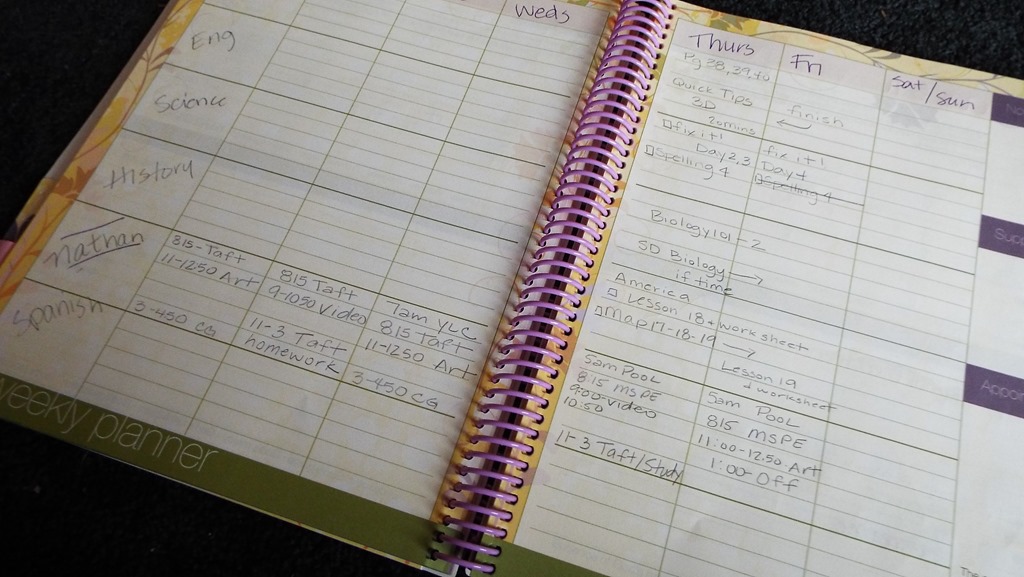 Weds
Eng
Science
History
Nathan
Spanish
815-Taft
11-1250 Art
3-450 CG
815 Taft
9-1050 Video
11-3 Taft
homework
7am YLC
815 Taft
11-1250 Art
3-450 CG
weekly planner
Thurs
Fri
Sat/Sun
Quick Tips
3D
20mins
fix it!
Day 2,3
Spelling 4
finish
fix it!
Day 4
Spelling 4
Biology 101 - 2
SD Biology
if time
America
Lesson 18 + worksheet
Map 17-18-19
Lesson 19
+ worksheet
5am Pool
815 MSPE
9:00-Video
10:50
11-3 Taft/Study
5am Pool
815 MSPE
11:00-12:50 Art
1:00-Off